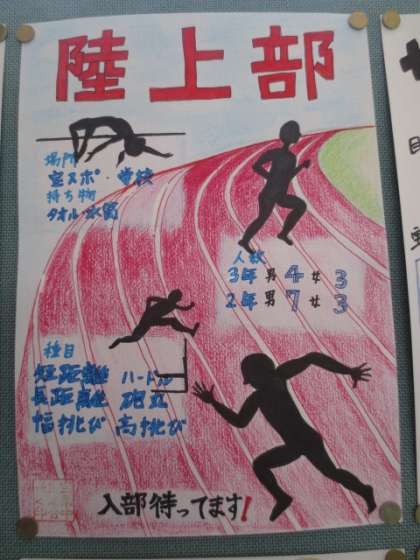 陸上部
場所
スポ・学校
持ち物
タオル・水筒
人数
3年 男 4 女 3
2年 男 7 女 3
種目
短距離 ハードル
長距離 砲丸
幅跳び 高跳び
入部待ってます!